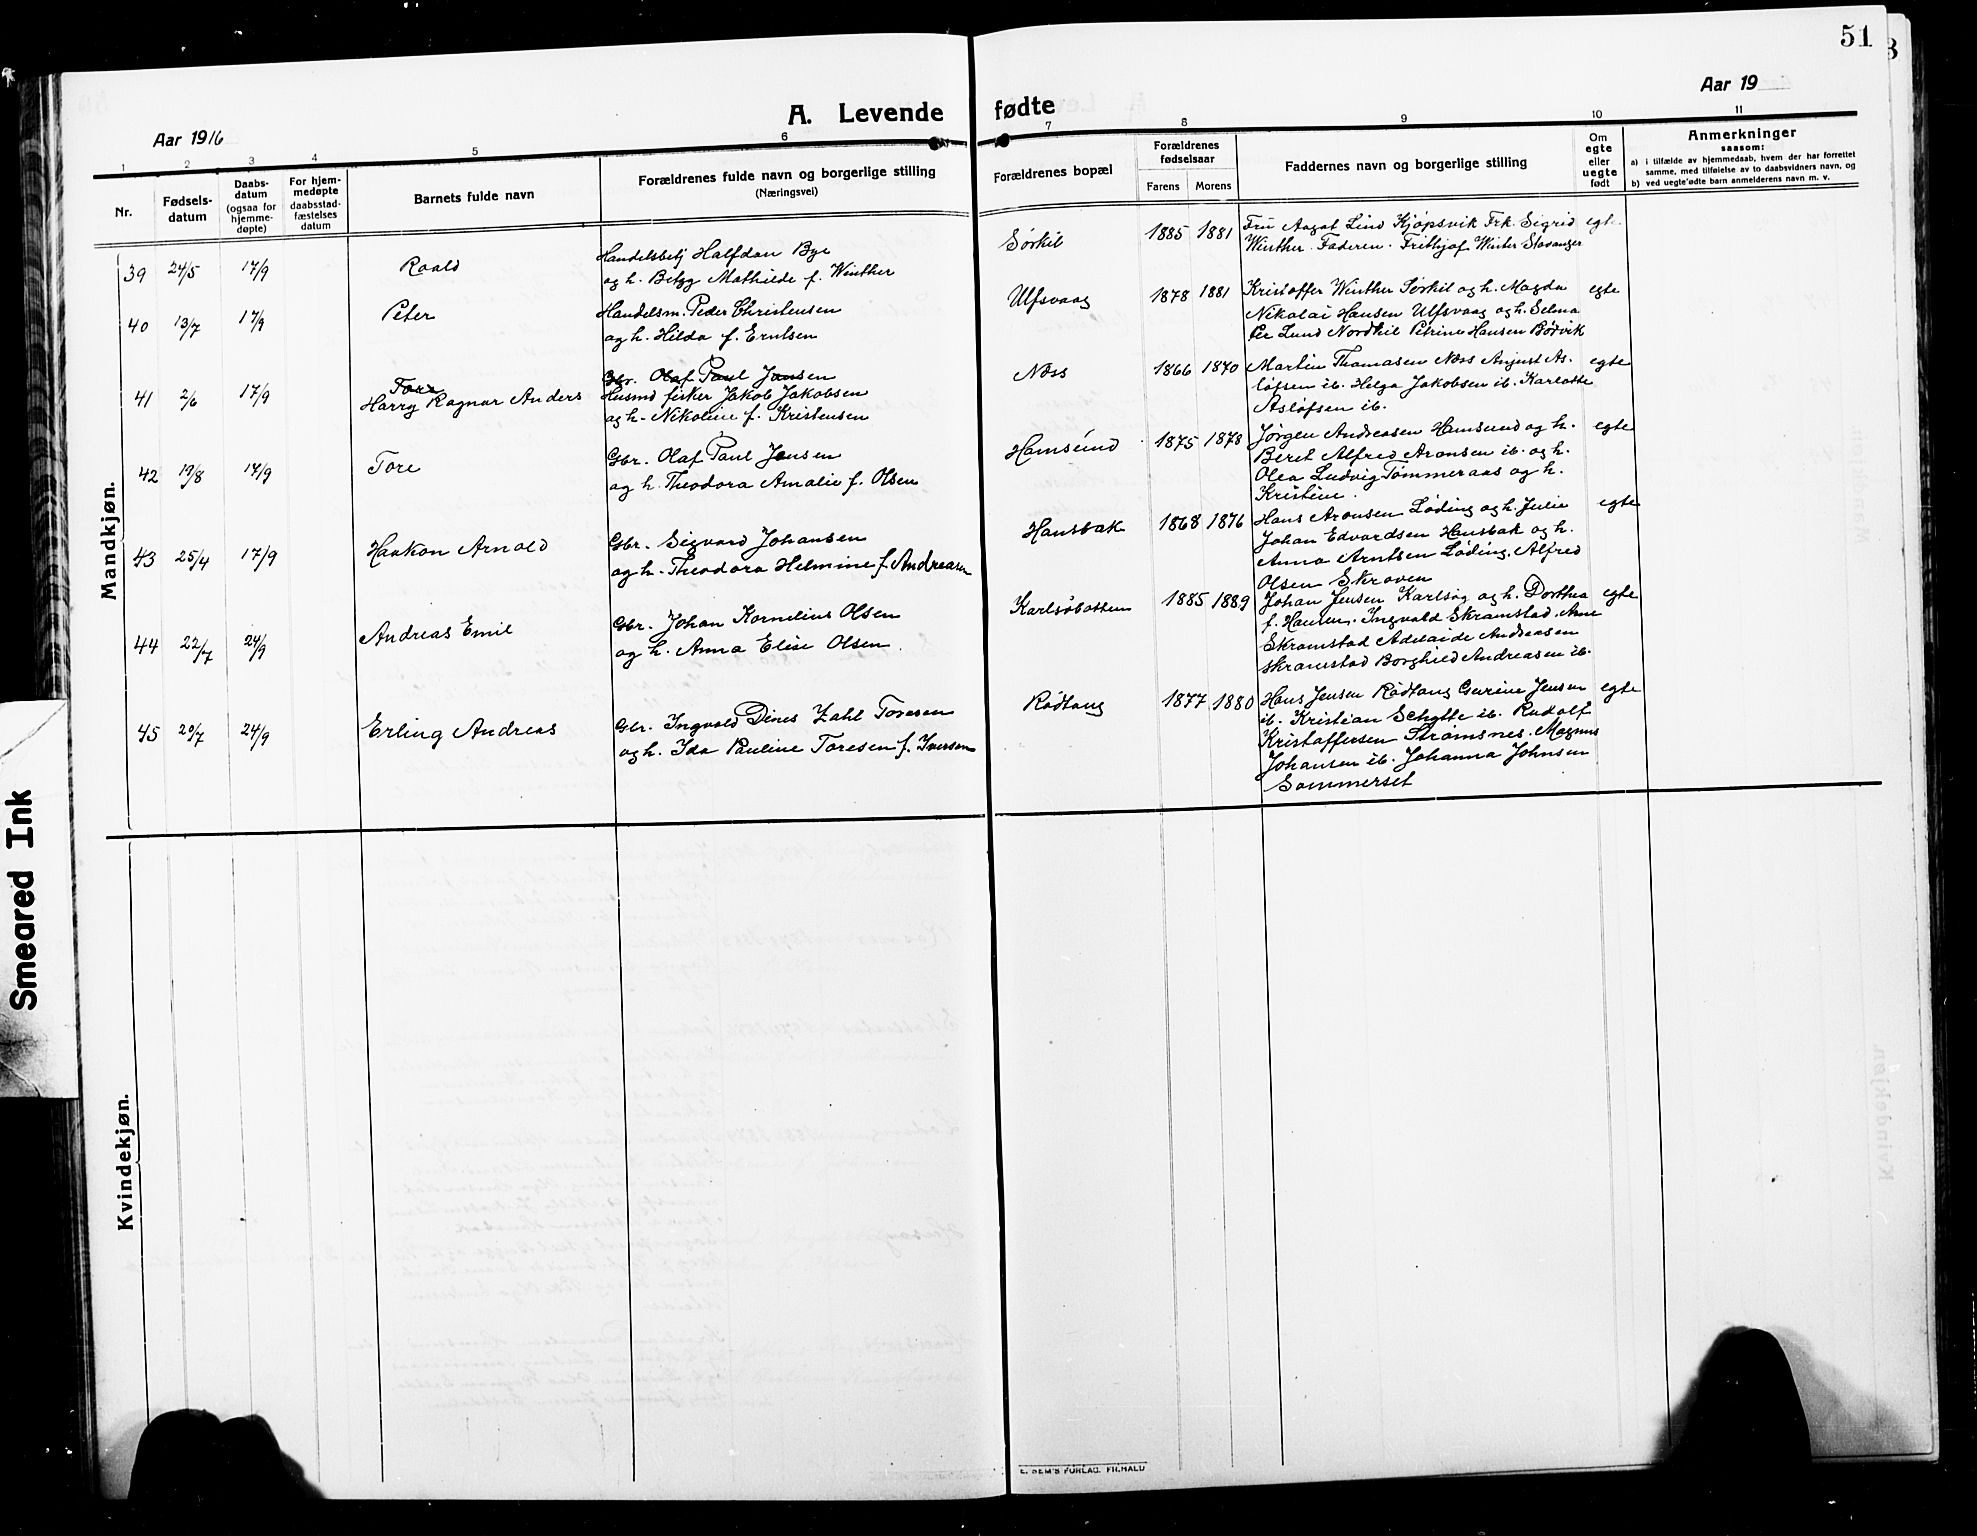 51
Aar 1916
A. Levende
fødte
Aar 19
1 2 3 4 5 6 7 8 9 10 11
Nr.
Fødsels-
datum
Daabs-
datum
(ogsaa for
hjemme-
døpte)
For hjem-
medøpte
daabsstad-
fæstelses
datum
Barnets fulde navn
Forældrenes fulde navn og borgerlige stilling
(Næringsvei)
Forældrenes bopæl
Forældrenes
fødselsaar
Farens Morens
Faddernes navn og borgerlige stilling
Om
egte
eller
uegte
født
Anmerkninger
saasom:
a) i tilfælde av hjemmedaab, hvem der har forrettet
samme, med tilføielse av to daabsvidners navn, og
b) ved uegte fødte barn anmelderens navn m. v.
Mandkjøn.
39 24/5 17/9 Roald
Handelsbetj Halfdan Bye
og h. Betzy Mathilde f. Winther
Sørkil 1885 1881
Fru Aagot Lind Kjøpsvik Frk. Sigrid
Winther. Faderen. Frithjof Winter Stavanger
egte
40 13/7 17/9 Peter
Handelsm. Peder Christensen
og h. Hilda f. Erntsen
Ulfsvaag 1878 1881
Kristoffer Winther Sørkil og h. Magda
Nikolai Hansen Ulfsvaag og h. Selma
Per Lund Nordkil Petrine Hansen Bødvik
egte
41 2/6 17/9 Tore
Harry Ragnar Anders
Gbr. Olaf Paul Jensen
Husmd fisker Jakob Jakobsen
og h. Nikoline f. Kristensen
Næss 1866 1870
Martin Thomasen Næss August As-
løfsen ib. Helga Jakobsen ib. Karlotte
Asløfsen ib.
egte
42 19/8 17/9 Tore
Gbr. Olaf Paul Jensen
og h. Theodora Amalie f. Olsen
Hamsund 1875 1878
Jørgen Andreasen Hamsund og h.
Beret Alfred Aronsen ib. og h.
Olea Ludvig Tømmeraas og h.
Kristine.
egte
43 25/4 17/9 Haakon Arnold
Gbr. Sigvard Johansen
og h. Theodora Helmine f. Andreasen
Hansbak 1868 1876
Hans Aronsen Løding og h. Julie
Johan Edvardsen Hansbak og h.
Anna Arntsen Løding. Alfred
Olsen Skroven
egte
44 22/7 24/9 Andreas Emil
Gbr. Johan Kornelius Olsen
og h. Anna Elise Olsen.
Karlsøbotten 1885 1889
Johan Jensen Karlsøg og h. Dorthea
f. Hansen. Ingvald Skramstad. Arne
Skramstad Adelaide Andreasen
Skramstad Borghild Andreasen ib.
egte
45 20/7 24/9 Erling Andreas
Gbr. Ingvald Dines Zahl Toresen
og h. Ida Pauline Toresen f. Iversen
Rødtang 1877 1880
Hans Jensen Rødtang Gurine Jensen
ib. Kristian Schytte ib. Rudolf
Kristoffersen Strømsnes. Magnus
Johansen ib. Johanna Johnsen
Sommerset
egte
Kvindekjøn.
Smeared Ink
E. SEM'S FORLAG, FR.HALD